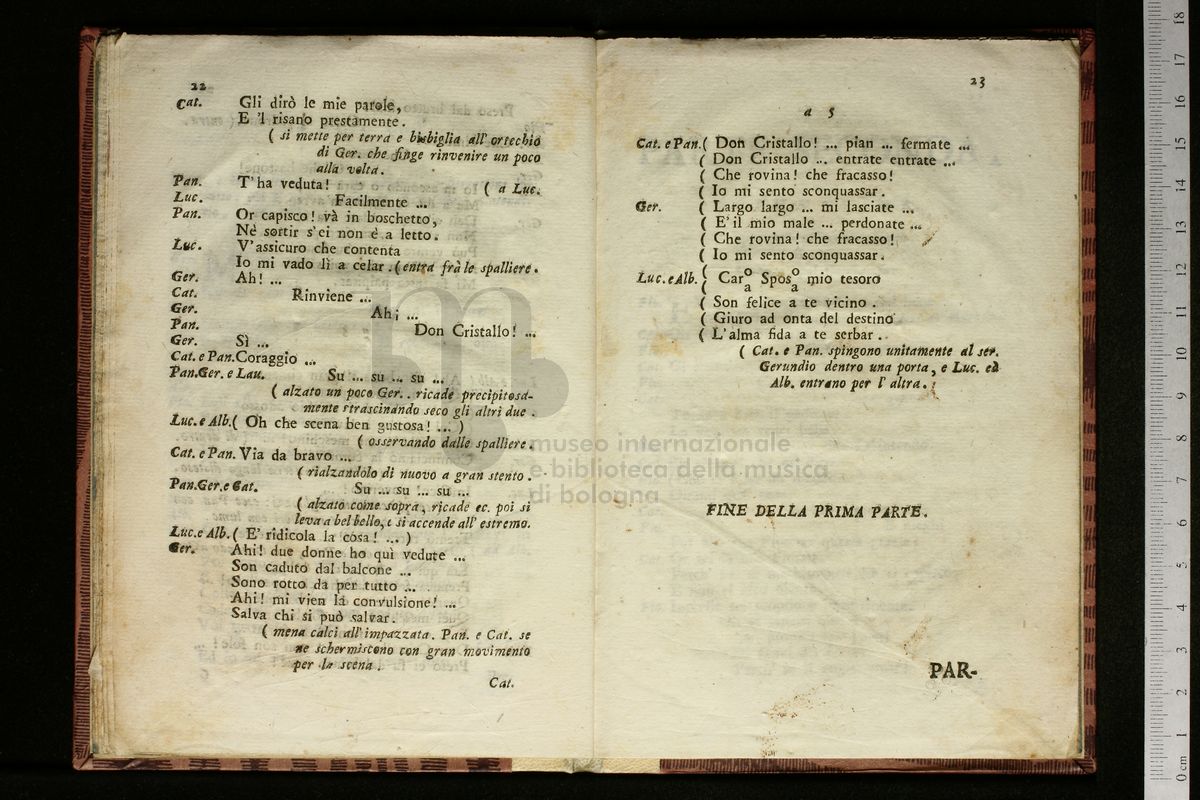 22
Cat. Gli dirò le mie parole,
E 'l risano prestamente.
( si mette per terra e bisbiglia all' orecchio
di Ger. che finge rinvenire un poco
alla volta.
Pan. T'ha veduta! ( a Luc.
Luc. Facilmente ...
Pan. Or capisco! và in boschetto,
Nè sortir s'ei non è a letto.
Luc. V'assicuro che contenta
Io mi vado lì a celar. (entra frà le spalliere.
Ger. Ah! ...
Cat. Rinviene ...
Ger. Ahi ...
Pan. Don Cristallo! ...
Ger. Sì ...
Cat. e Pan. Coraggio ...
Pan. Ger. e Lau. Su ... su ... su ...
( alzato un poco Ger.. ricade precipitosa-
mente strascinando seco gli altri due.
Luc. e Alb. ( Oh che scena ben gustosa! ... )
( osservando dalle spalliere.
Cat. e Pan. Via da bravo ...
( rialzandolo di nuovo a gran stento.
Pan. Ger. e Cat. Su ... su ... su ...
( alzato come sopra, ricade ec. poi si
leva a bel bello, e si accende all' estremo.
Luc. e Alb. ( E' ridicola la cosa! ... )
Ger. Ahi! due donne ho quì vedute ...
Son caduto dal balcone ...
Sono rotto da per tutto ...
Ahi! mi vien la convulsione! ...
Salva chi si può salvar.
( mena calci all' impazzata. Pan. e Cat. se
ne schermiscono con gran movimento
per la scena.
Cat.
23
a 5
Cat. e Pan. ( Don Cristallo! ... pian ... fermate ...
( Don Cristallo ... entrate entrate ...
( Che rovina! che fracasso!
( Io mi sento sconquassar.
Ger. ( Largo largo ... mi lasciate ...
( E' il mio male ... perdonate ...
( Che rovina! che fracasso!
( Io mi sento sconquassar.
Luc. e Alb. ( Car o/a Spos o/a mio tesoro
( Son felice a te vicino.
( Giuro ad onta del destino
( L'alma fida a te serbar.
( Cat. e Pan. spingono unitamente al ser.
Gerundio dentro una porta, e Luc. ed
Alb. entrano per l' altra.
FINE DELLA PRIMA PARTE.
PAR-
museo internazionale
e biblioteca della musica
di bologna
0 cm 1 2 3 4 5 6 7 8 9 10 11 12 13 14 15 16 17 18